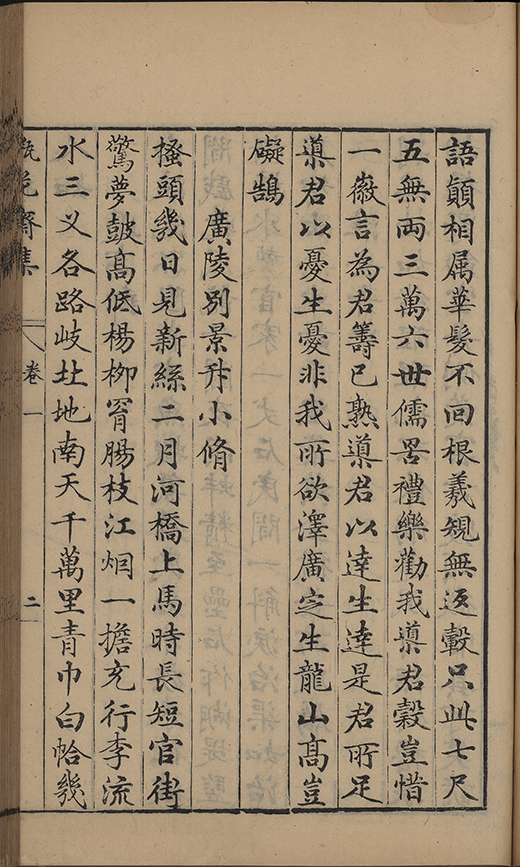 語顛相属華髮不回根羲規無返轂只此七尺
五無両三萬六世儒苦禮樂勸我導君穀豈惜
一微言為君籌已熟導君以達生達是君所足
導君以憂生憂非我所欲澤廣定生龍山髙豈
礙鵠
廣陵別景升小脩
搔頭幾日見新絲二月河橋上馬時長短官街
驚夢鼓髙低楊柳䏍腸枝江烟一擔充行李流
水三义各路岐北地南天千萬里青巾白帢幾
瓶花齋集
卷一
二